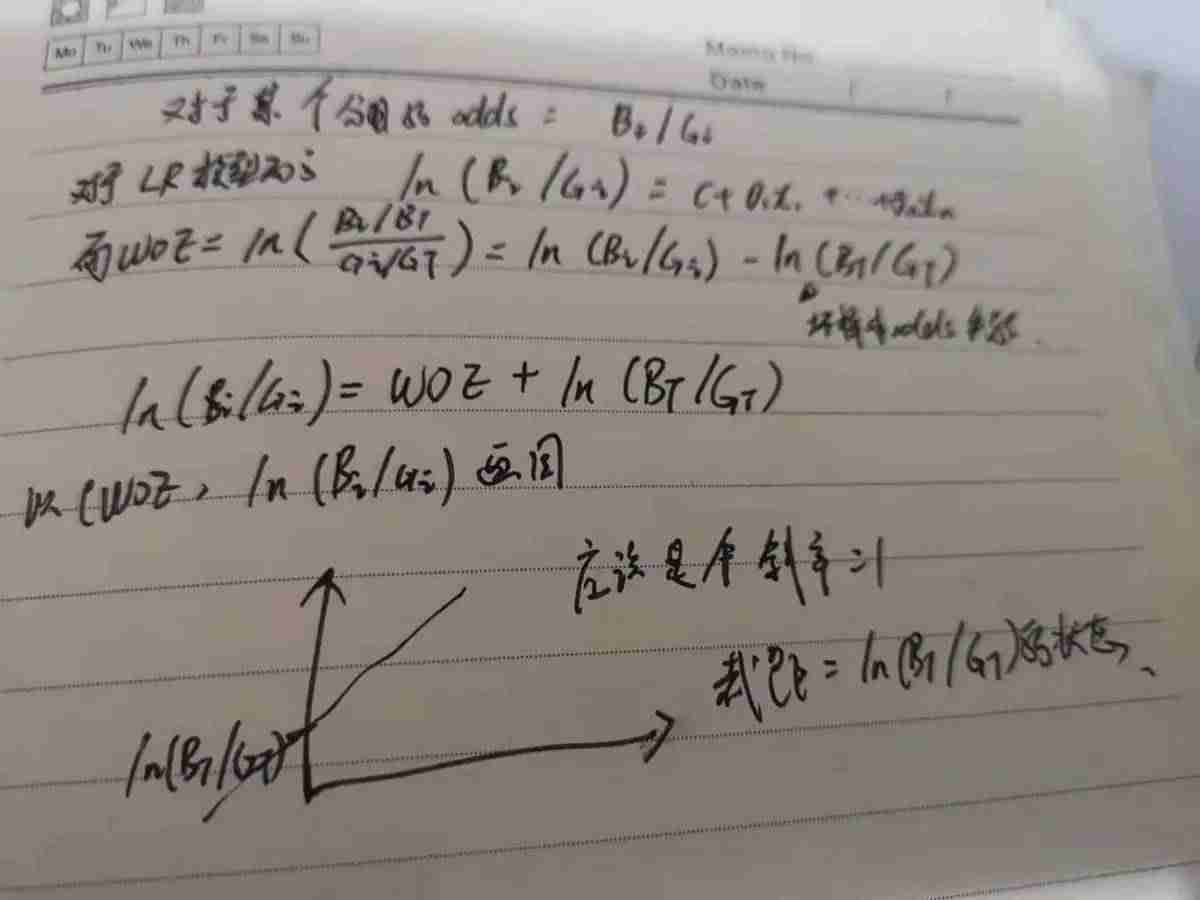 Mo Tu We Th Fr Sa Su
Memo No.
Date / /
对于某个分组的 odds = Bi/Gi
对于LR模型而言 ln(Bi/Gi) = C+θ₁x₁+…+θₙxₙ
而WOE = ln((Bi/BT)/(Gi/GT)) = ln(Bi/Gi) - ln(BT/GT)
odds
ln(Bi/Gi) = WOE + ln(BT/GT)
以(WOE, ln(Bi/Gi) 画图
应该是个斜率=1
截距=ln(BT/GT)的状态、
ln(BT/GT)